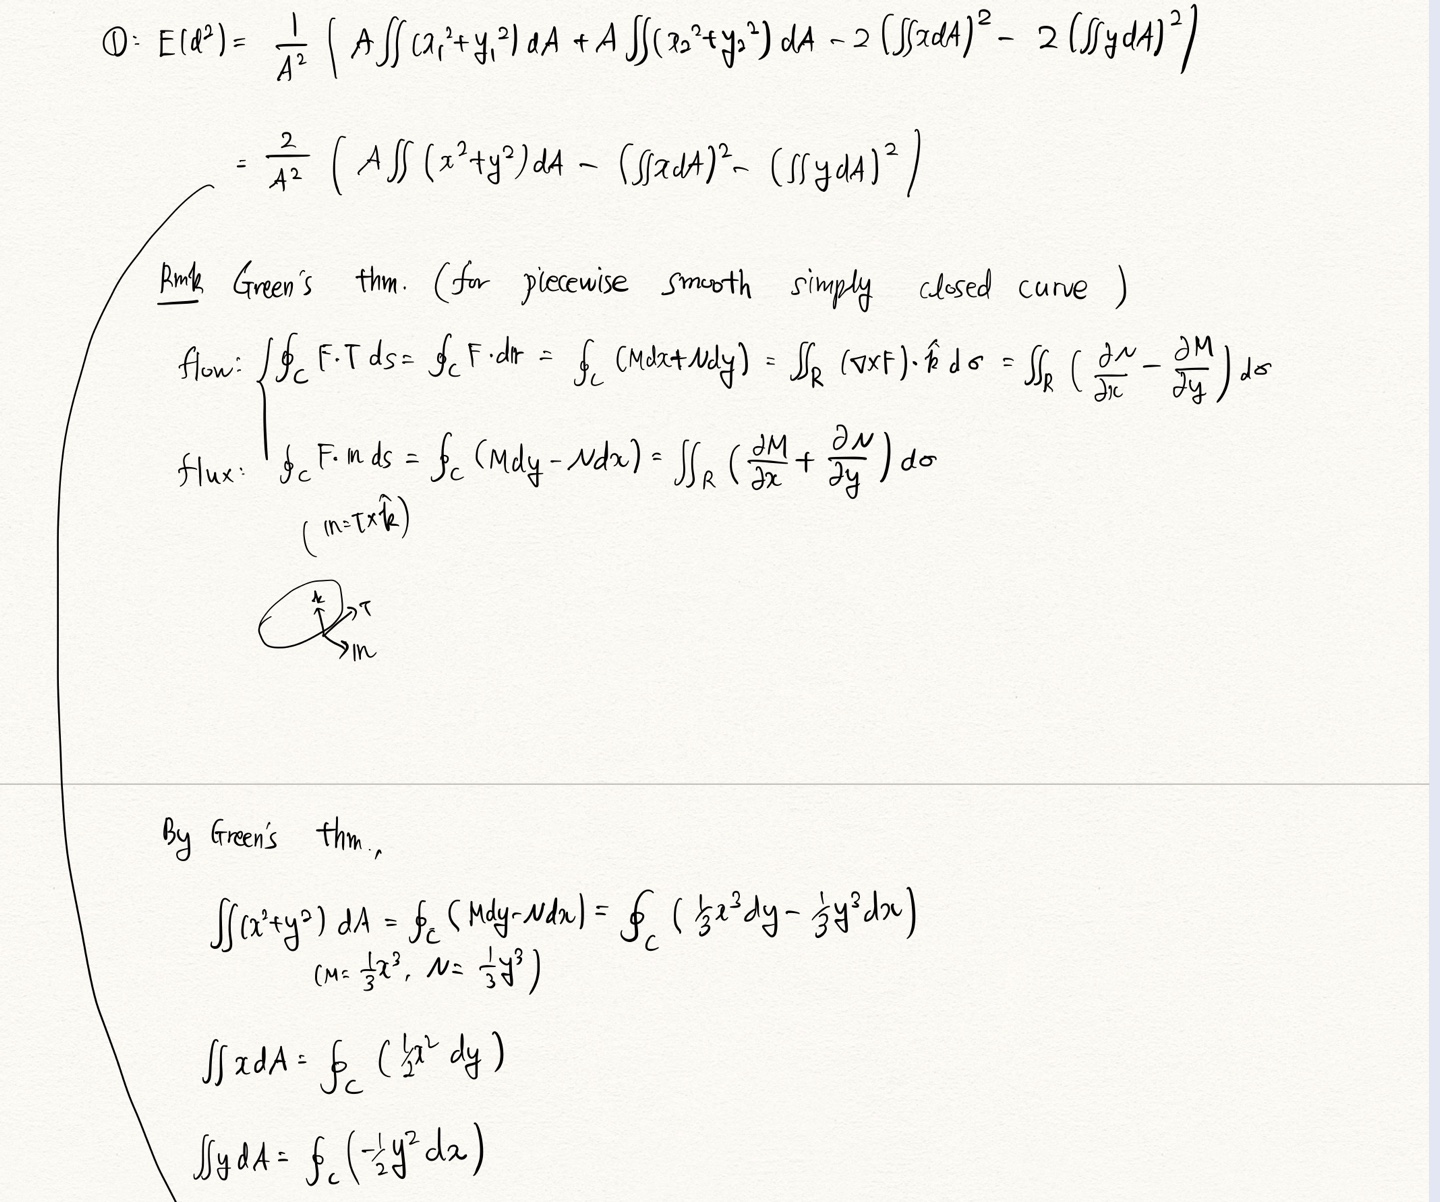 ①: E(d²) = 1/A² ( A∬(x₁²+y₁²) dA + A∬(x₂²+y₂²) dA - 2(∬xdA)² - 2(∬ydA)² )
= 2/A² ( A∬(x²+y²)dA - (∬xdA)² - (∬ydA)² )
Rmk Green's thm. (for piecewise smooth simply closed curve)
flow: ∮_C F·T ds = ∮_C F·dr = ∮_C (Mdx+Ndy) = ∬_R (∇×F)·k̂ dσ = ∬_R (∂N/∂x - ∂M/∂y) dσ
flux: ∮_C F·n ds = ∮_C (Mdy-Ndx) = ∬_R (∂M/∂x + ∂N/∂y) dσ
(n=T×k̂)
k
T
n
By Green's thm.,
∬(x²+y²) dA = ∮_C (Mdy-Ndx) = ∮_C (1/3 x³dy - 1/3 y³dx)
(M= 1/3 x³, N= 1/3 y³)
∬xdA = ∮_C (1/2 x² dy)
∬ydA = ∮_C (-1/2 y² dx)